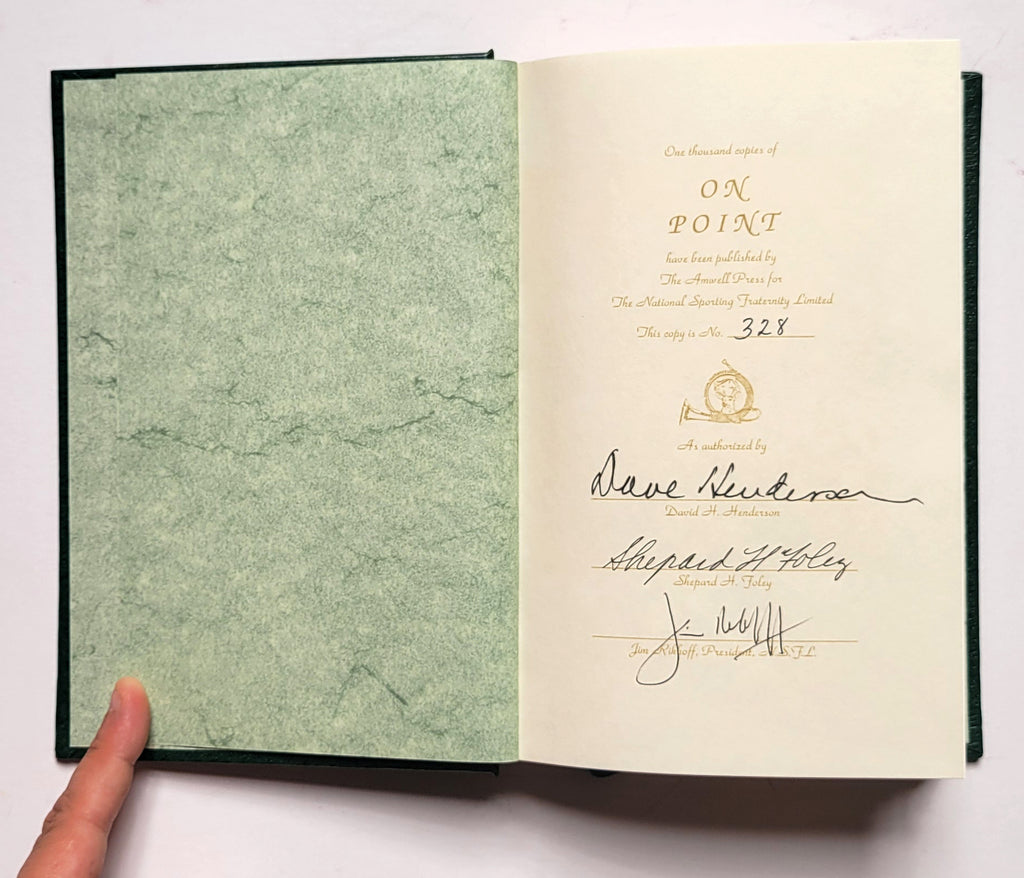 One thousand copies of
ON
POINT
have been published by
The Amwell Press for
The National Sporting Fraternity Limited
This copy is No. 328
As authorized by
Dave Henderson
David H. Henderson
Shepard H Foley
Shepard H. Foley
Jim Rikhoff
Jim Rikhoff, President, N.S.F.L.